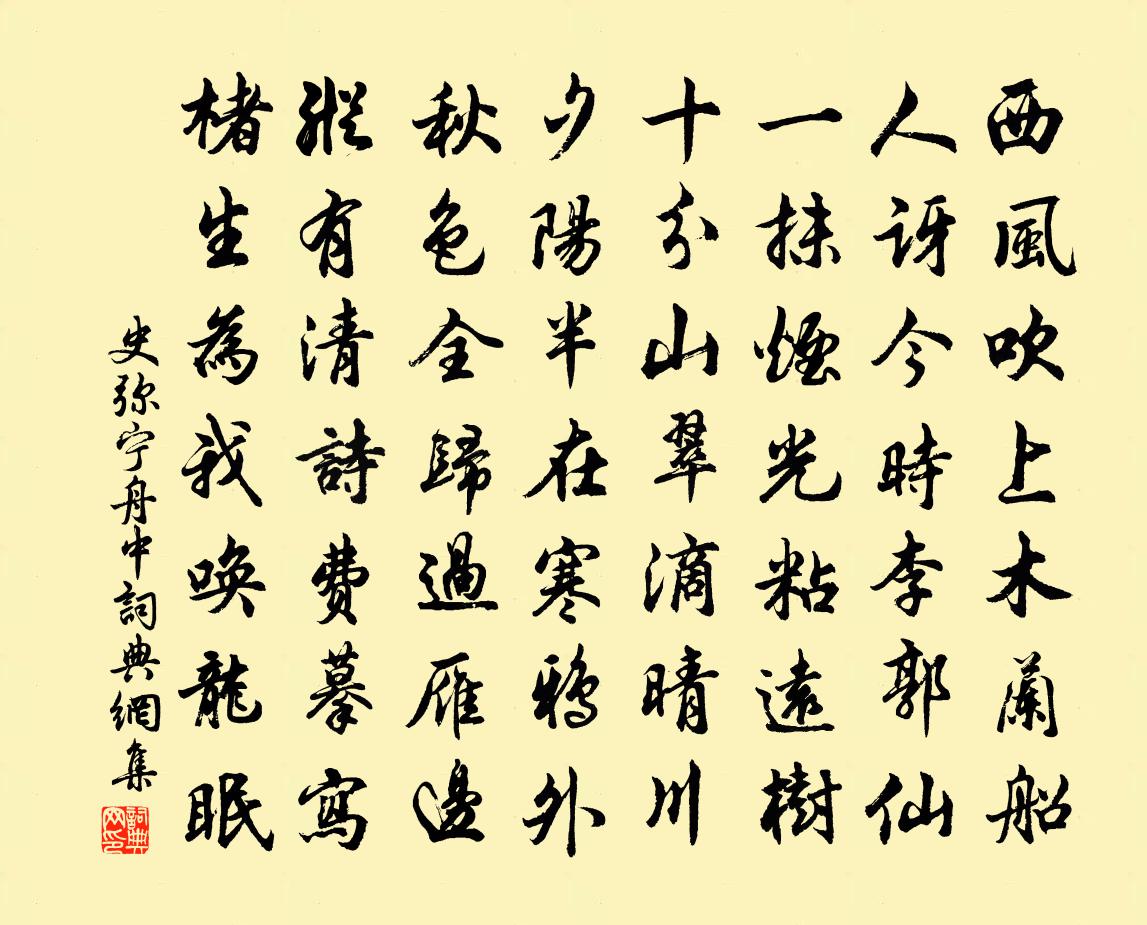 西風吹上木蘭船
人訝今時李郭仙
一抹煙光粘遠樹
十分山翠滴晴川
夕陽半在寒鴉外
秋色全歸過雁邊
縱有清詩費摹寫
楮生為我喚龍眠
史弥宁舟中詞典網集
詞典网印